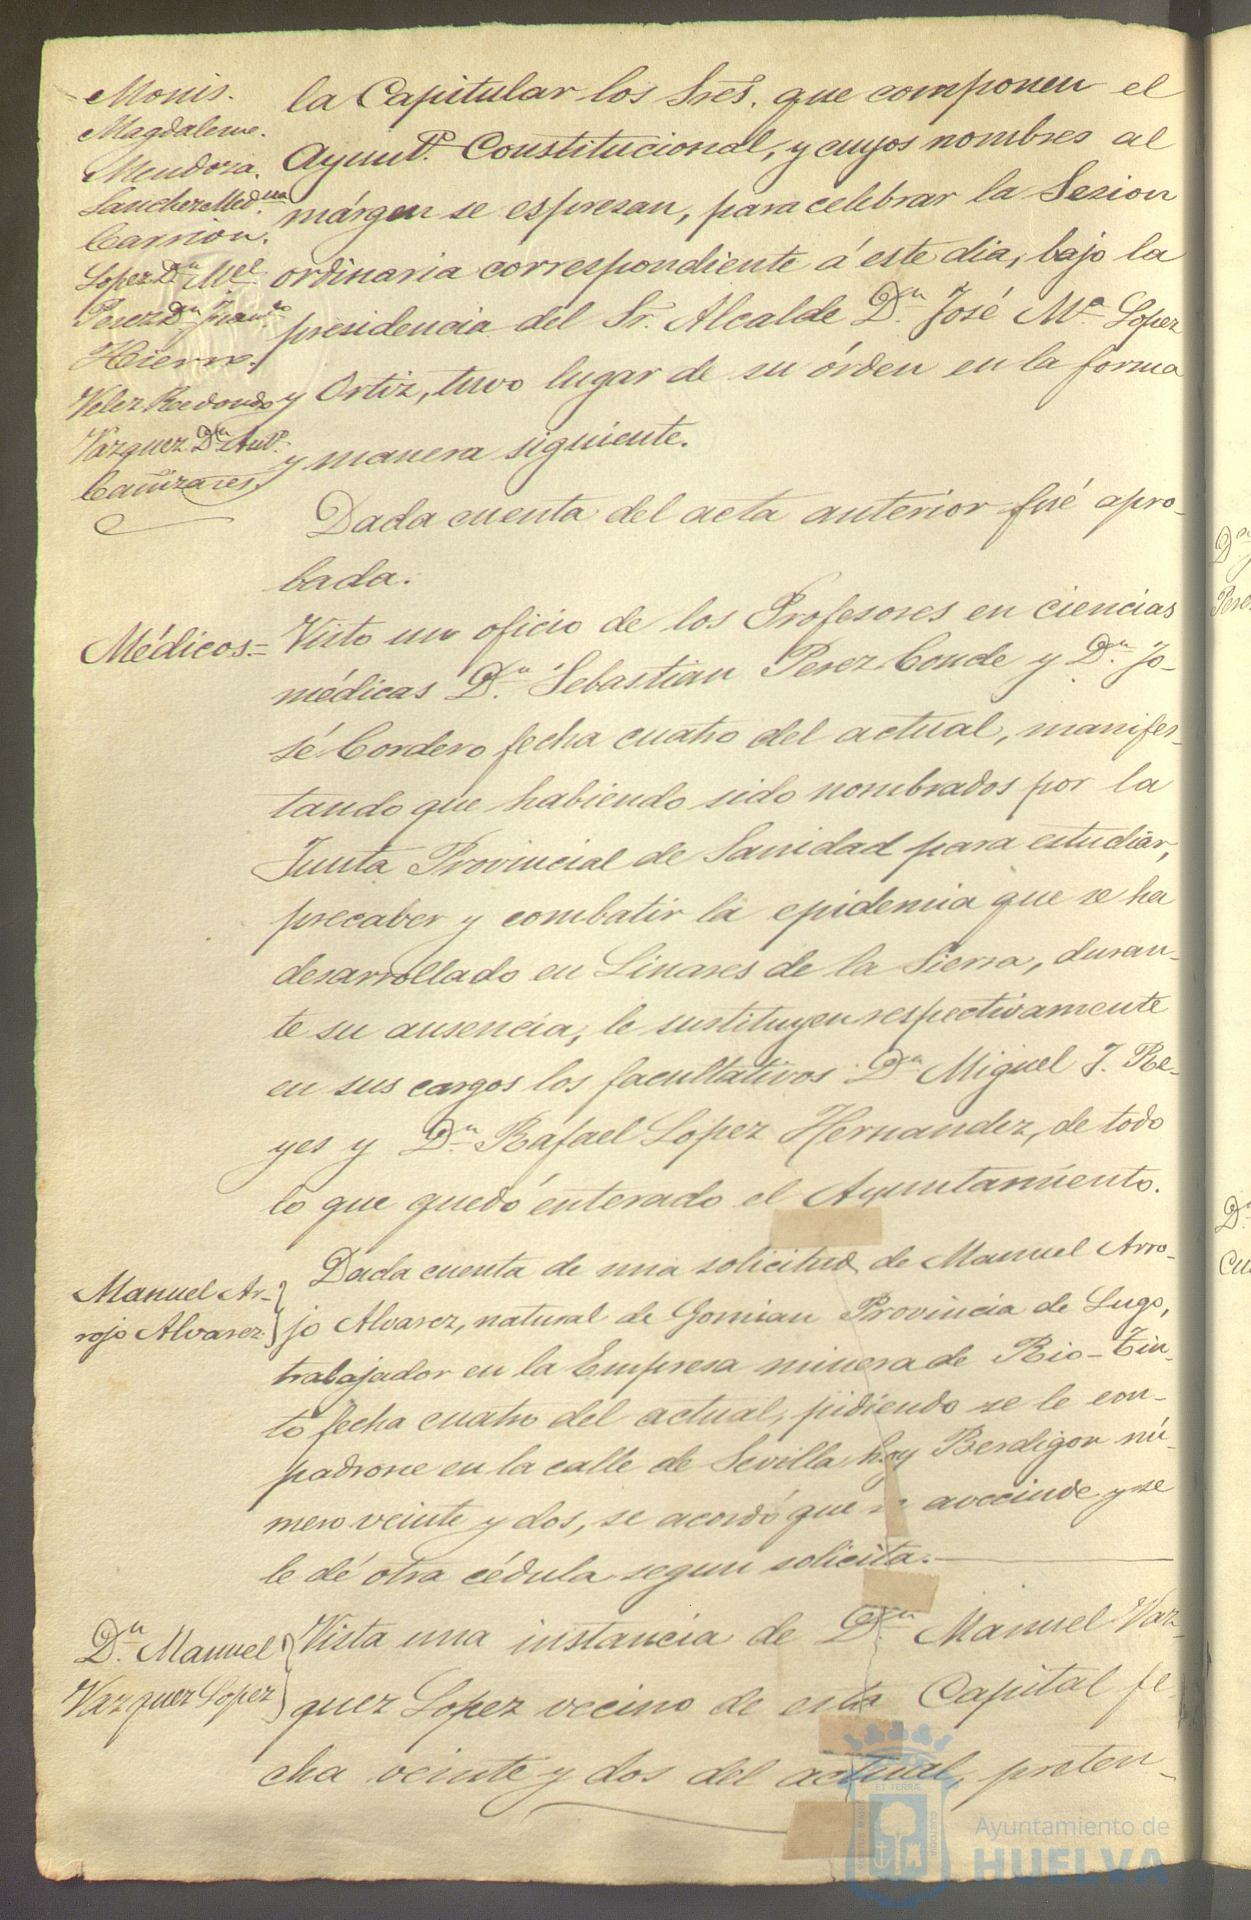 Monis.
Magdalena.
Mendoza.
Sanchez Med.na
Carrion.
Lopez Dn Mel
Perez Dn Franco
Hierro.
Velez Redondo
Vazquez Dn Anto.
Cañizares.
la Capitular los Sres. que componen el
Ayunto. Constitucional, y cuyos nombres al
márgen se espresan, para celebrar la Sesion
ordinaria correspondiente á este dia, bajo la
presidencia del Sr. Alcalde Dn. José Ma. Lopez
y Ortiz, tuvo lugar de su órden en la forma
y manera siguiente.
Dada cuenta del acta anterior fué apro-
bada.
Médicos=
Visto un oficio de los Profesores en ciencias
médicas Dn. Sebastian Perez Conde y Dn. Jo-
sé Cordero fecha cuatro del actual, manifes-
tando que habiendo sido nombrados por la
Junta Provincial de Sanidad para estudiar,
precaber y combatir la epidemia que se ha
desarrollado en Linares de la Sierra, duran-
te su ausencia, le sustituyen respectivamente
en sus cargos los facultativos Dn Miguel J. Re-
yes y Dn. Rafael Lopez Hernandez, de todo
lo que quedó enterado el Ayuntamiento.
Manuel Ar-
rojo Alvarez.
Dada cuenta de una solicitud de Manuel Arro-
jo Alvarez, natural de Gomian Provincia de Lugo,
trabajador en la Empresa minera de Rio-Tin-
to fecha cuatro del actual, pidiendo se le em-
padrone en la calle de Sevilla hoy Berdigon nú-
mero veinte y dos, se acordó que se avecinde y se
le dé otra cédula segun solicita.
Dn. Manuel
Vazquez Lopez
Vista una instancia de Dn. Manuel Vaz-
quez Lopez vecino de esta Capital fe-
cha veinte y dos del actual, preten-
Ayuntamiento de
HUELVA